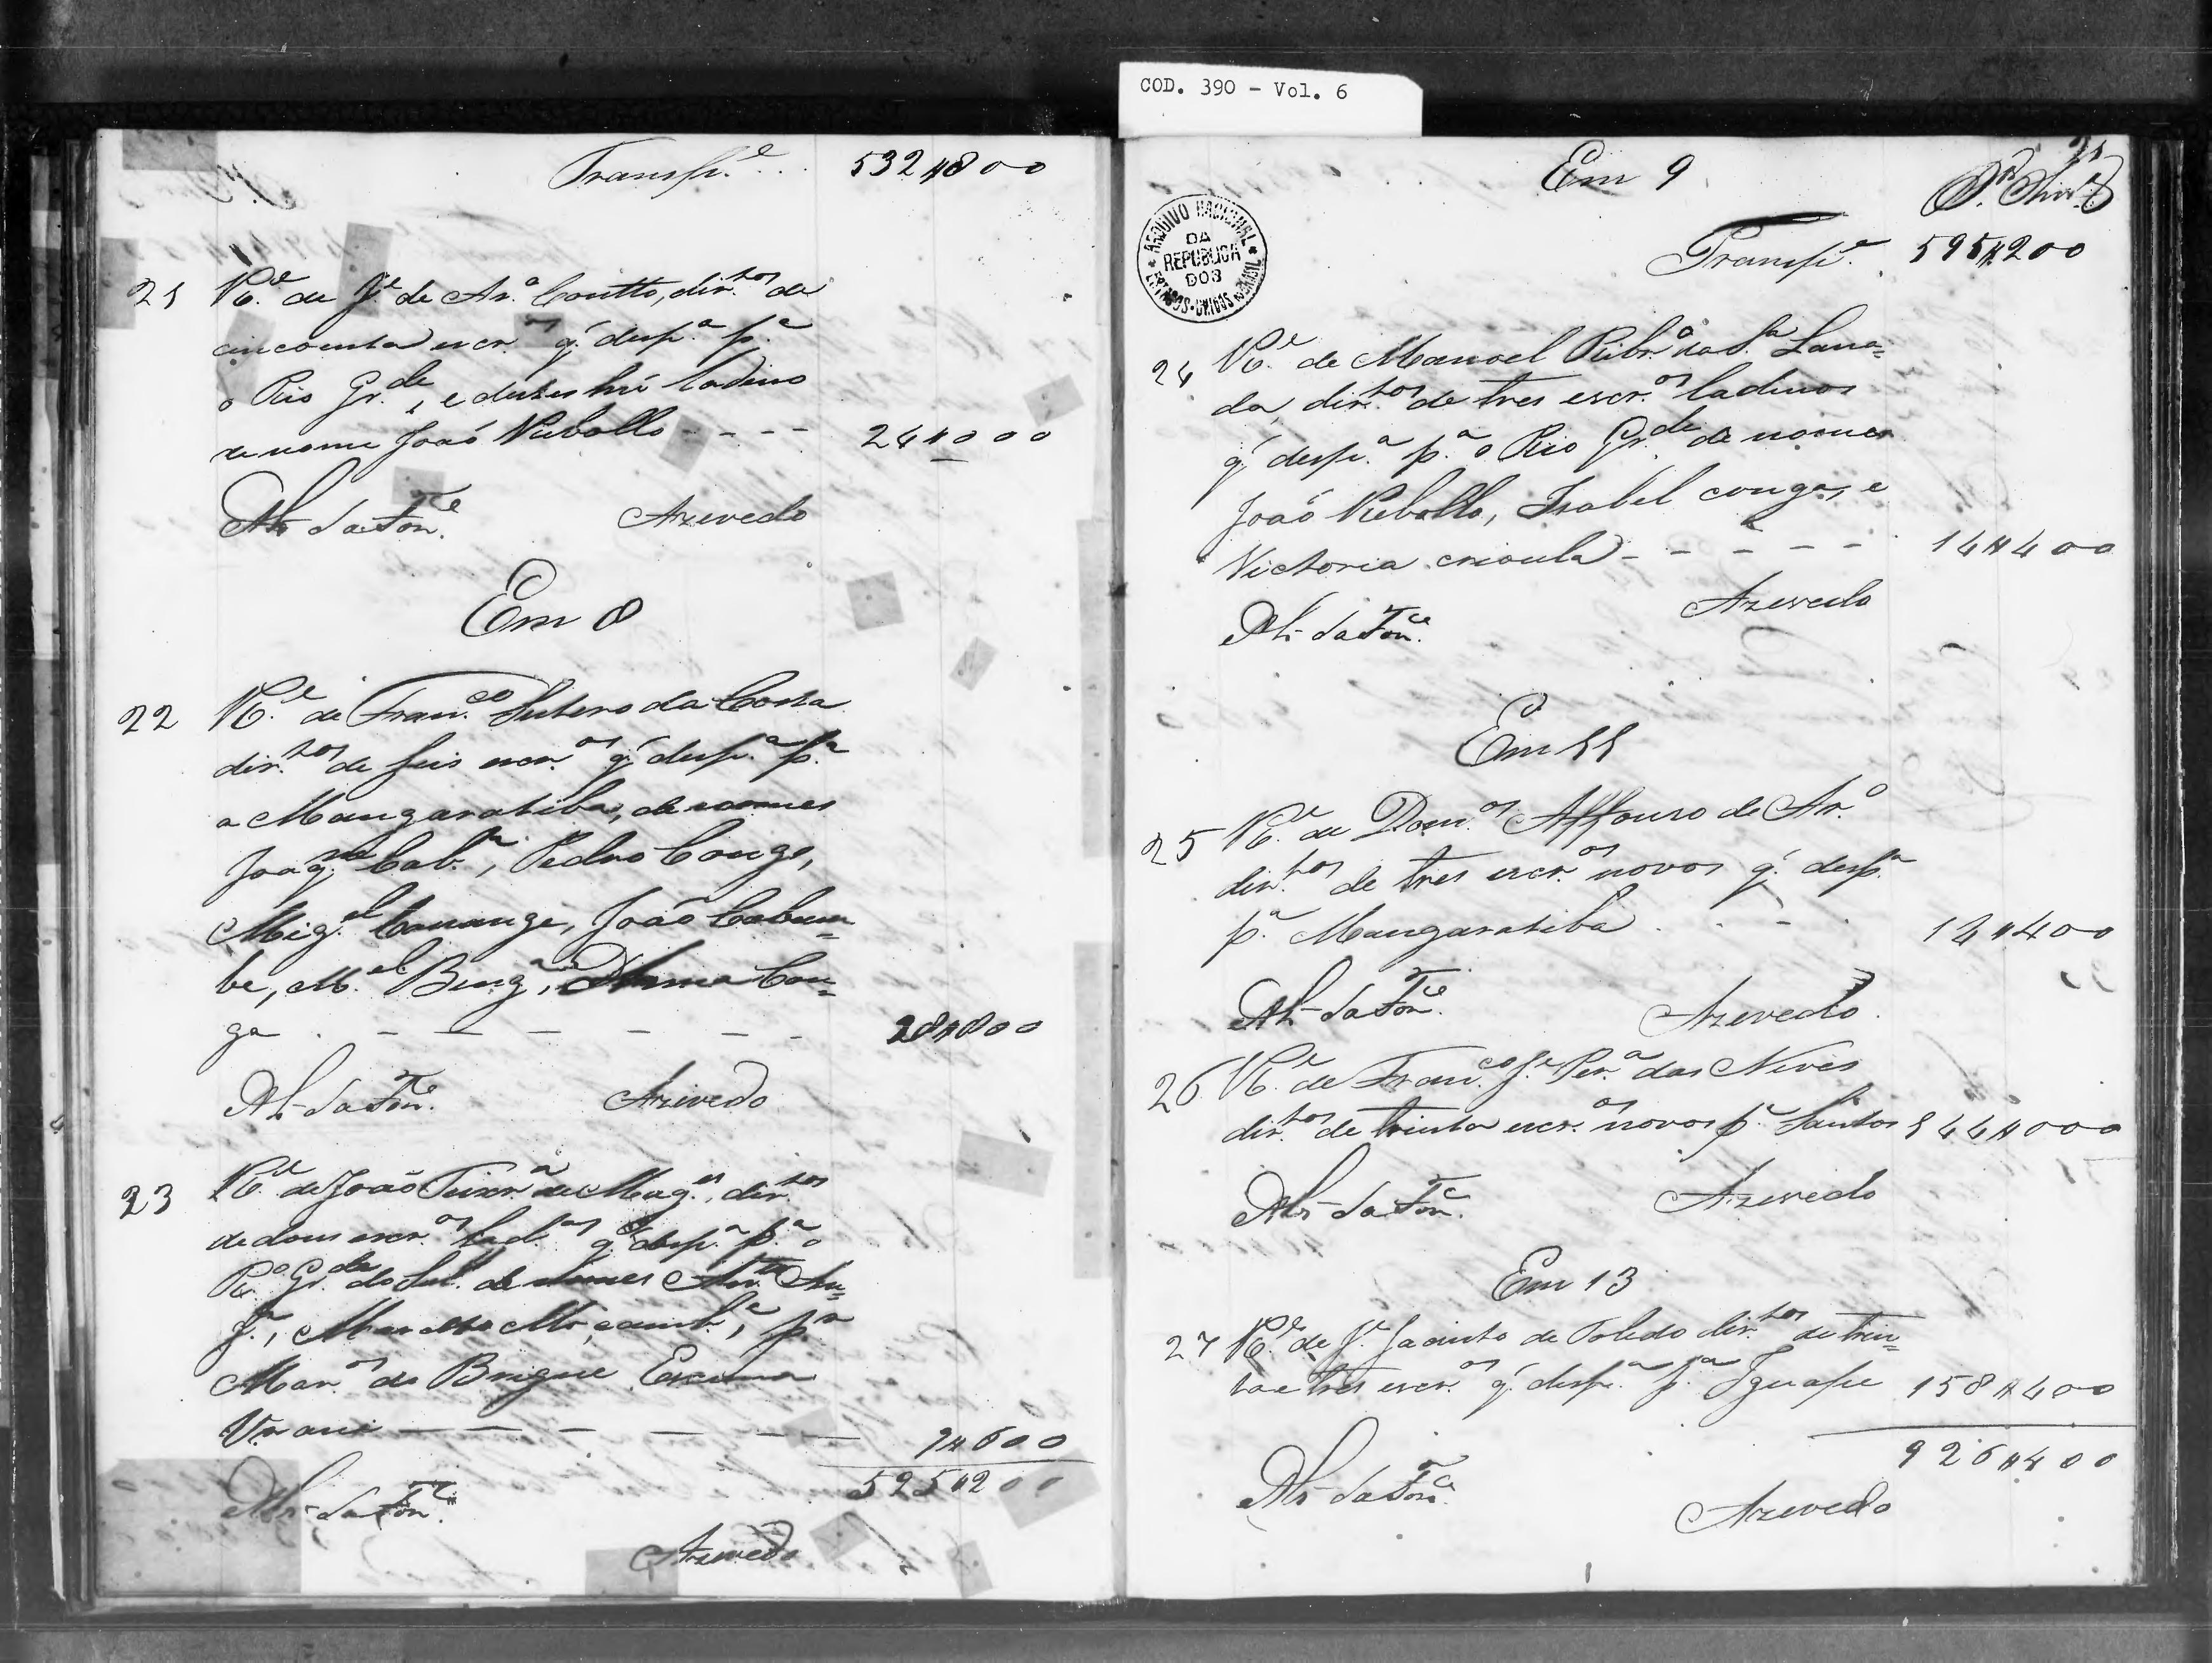 COD. 390 - Vol. 6
Transp.e . . . 532#800
21 R.e de J.e de Ar.o Coutto, dir.tos de
cincoenta escr.os q' desp.a p.a
o Rio Gr.de, e destes hú ladino
de nome João Rebollo - - - - 24#000
Al. da Fon.ce Azevedo
Em 8
22 R.e de Fran.co da Costa
dir.tos de seis escr.os q' desp.a p.a
a Mangaratiba, de nomes
Joaq.m Cab.a, Pedro Congo,
Mig.el Cacange, João Cabun=
be, M.el Beng.a, Con=
ga - - - - - - 28#800
Al. da Fon.ce Azevedo
23 R.e de João Teixr.a de Mag.es, dir.tos
de dous escr.os lad.os q' desp.a p.a o
R.o Gr.de do Sul de nomes Ant.o An=
g.a, Moçamb.e, p.r
Mar.os do Brigue
- - - - - - 9#600
595#200
Al. da Fon.ce
Azevedo
Em 9
Transp.e 595#200
ARQUIVO NACIONAL
DA
REPUBLICA
DOS
ESTADOS-UNIDOS DO BRASIL
24 R.e de Manoel Ribr.o da S.a Lana=
da, dir.tos de tres escr.os ladinos
q' desp.a p.a o Rio Gr.de de nomes
João Rebollo, Isabel conga, e
Victoria crioula - - - - - 14#400
Azevedo
Al. da Fon.ce
Em 11
25 R.e de Dom.os Affonso de Ar.o
dir.tos de tres escr.os novos q' desp.a
p.a Mangaratiba . . - . 14#400
Al. da Fon.ce Azevedo
26 R.e de Fran.co J.e Per.a das Neves
dir.tos de trinta escr.os novos p.a Santos 144#000
Al. da Fon.ce Azevedo
Em 13
27 R.e de J.e Jacinto de Toledo dir.tos de trin=
ta e tres escr.os q' desp.a p.a Iguape 158#400
926#400
Al. da Fon.ce
Azevedo